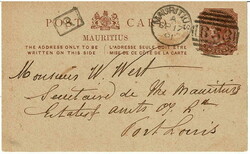 POST CARD
MAURITIUS
THE ADDRESS ONLY TO BE WRITTEN ON THIS SIDE
L'ADRESSE SEULE DOIT ÊTRE MISE DE CE CÔTÉ DE LA CARTE
MAURITIUS
Monsieur W. West
Secretaire de The Mauritius
Estates
Port Louis